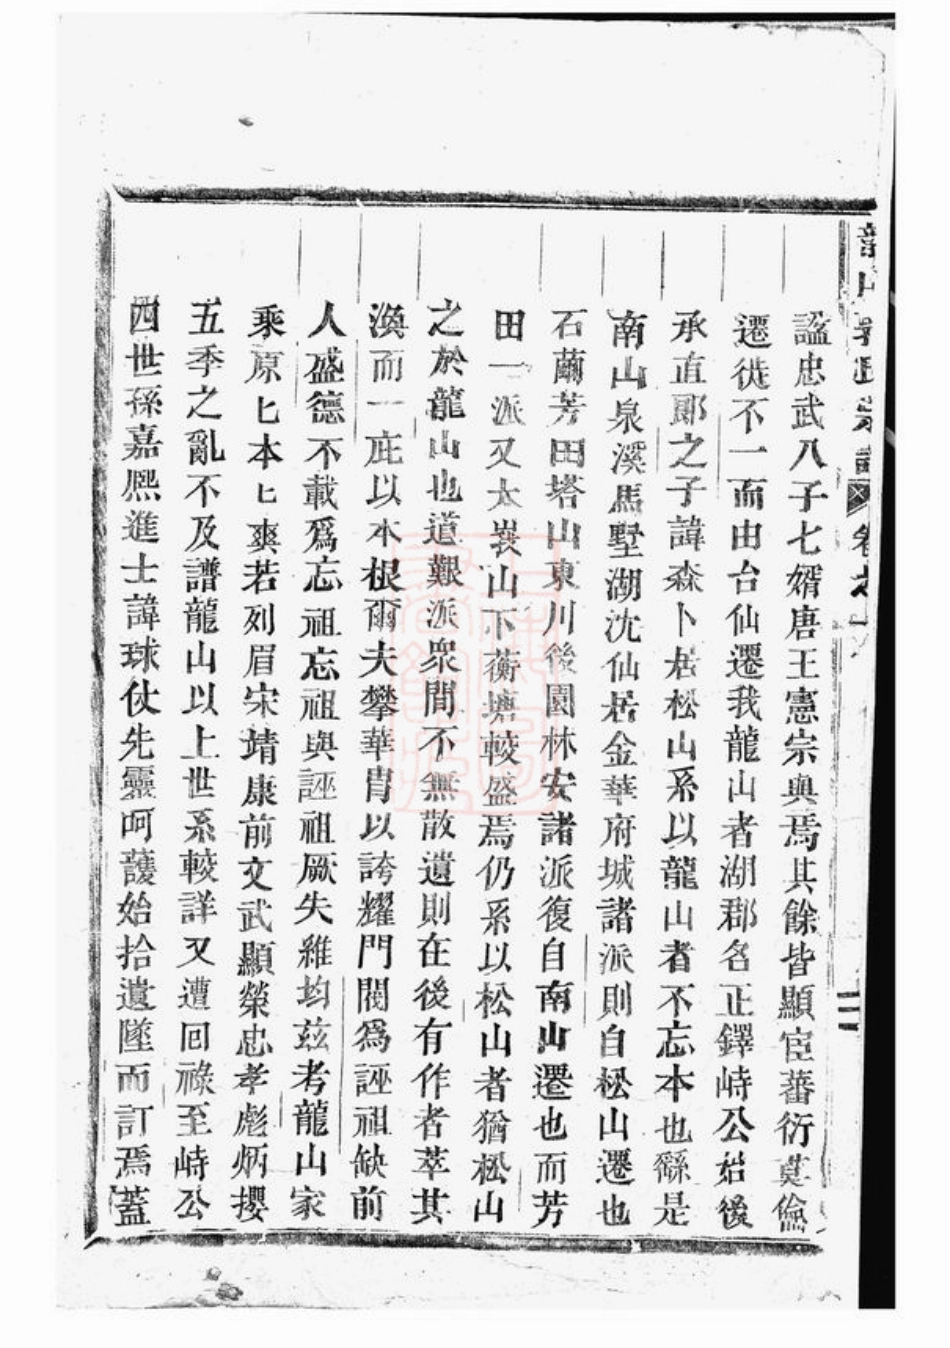 諡忠武八子七婿唐王憲宗與焉其餘皆顯宦蕃衍莫倫
遷徙不一而由台仙遷我龍山者湖郡名正鐸峙公始後
承直郎之子諱森卜居松山系以龍山者不忘本也繇是
南山泉溪馬墅湖沈仙居金華府城諸派則自松山遷也
石薾芳田塔山東川後園林安諸派復自南山遷也而芳
田一派又太裝山下蘅塘較盛焉仍系以松山者猶松山
之於龍山也道艱派衆間不無散遺則在後有作者萃其
渙而一庇以本根爾夫攀華胄以誇耀門閥爲誣祖缺前
人盛德不載爲忘祖忘祖與誣祖厥失維均茲考龍山家
乘原匕本匕爽若列眉宋靖康前文武顯榮忠孝彪炳攖
五季之亂不及譜龍山以上世系較詳又遭回祿至峙公
四世孫嘉熙進士諱球仗先靈呵護始拾遺墜而訂焉蓋